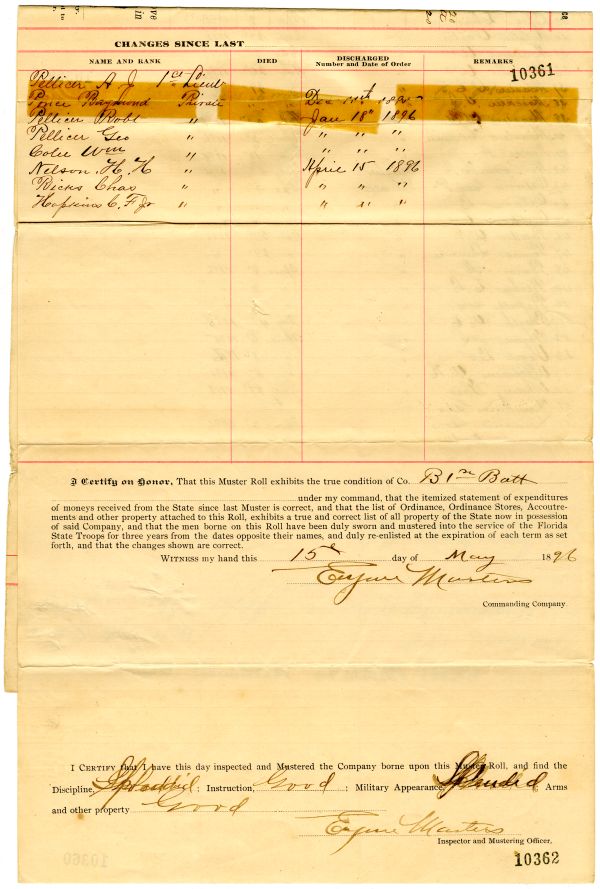 CHANGES SINCE LAST
NAME AND RANK DIED DISCHARGED Number and Date of Order REMARKS
10361
Pellicer A J 1st Lieut
Ponce Raymond Private Dec
Pellicer Robt " Jan 18" 1896
Pellicer Geo " " " "
Colee Wm " " " "
Nelson. H. H " April 15 1896
Ricks Chas " " " "
Hopkins C. F Jr " " " "
I Certify on Honor, That this Muster Roll exhibits the true condition of Co. B 1st Batt
under my command, that the itemized statement of expenditures
of moneys received from the State since last Muster is correct, and that the list of Ordinance, Ordinance Stores, Accoutre-
ments and other property attached to this Roll, exhibits a true and correct list of all property of the State now in possession
of said Company, and that the men borne on this Roll have been duly sworn and mustered into the service of the Florida
State Troops for three years from the dates opposite their names, and duly re-enlisted at the expiration of each term as set
forth, and that the changes shown are correct.
WITNESS my hand this 15th day of May 1896
Eugene Masters
Commanding Company.
I CERTIFY that I have this day inspected and Mustered the Company borne upon this Muster Roll, and find the
Discipline, ; Instruction, Good ; Military Appearance, Splendid ; Arms
and other property Good
Eugene Masters
Inspector and Mustering Officer.
10362